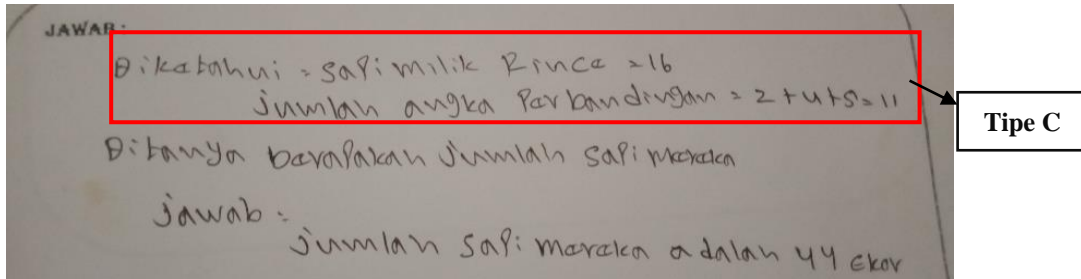 JAWAB:
Dikatahui = sapi milik Rince = 16
jumlah angka Perbandingan = 2+4+5=11
Tipe C
Ditanya berapakah jumlah sapi mereka
jawab :
jumlah sapi mereka adalah 44 ekor